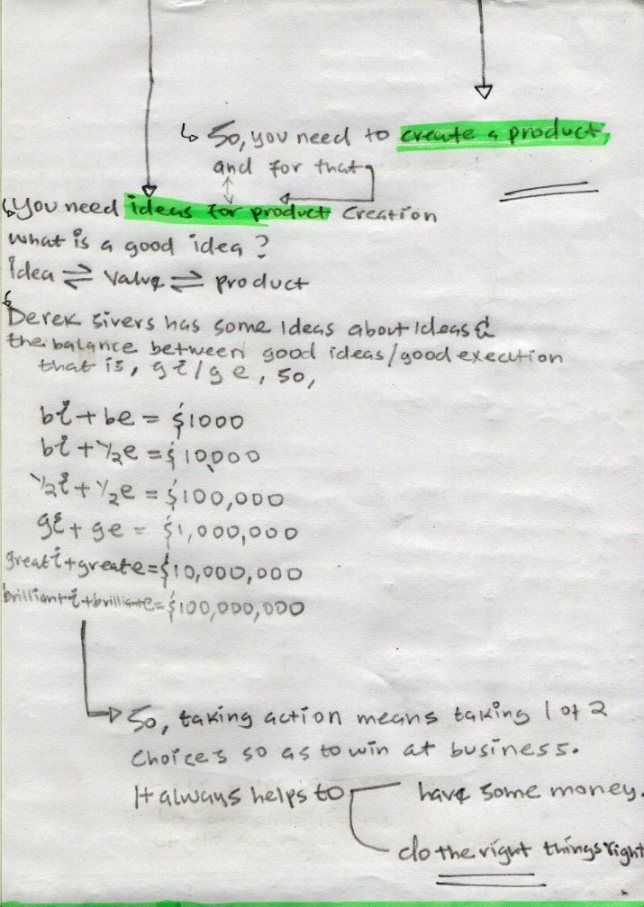 So, you need to create a product,
and for that
You need ideas for product creation
what is a good idea?
Idea ⇌ Value ⇌ product
Derek sivers has some Ideas about Ideas &
the balance between good ideas/good execution
that is, gi/ge, so,
bi + be = $1000
bi + 1/2e = $10,000
1/2i + 1/2e = $100,000
gi + ge = $1,000,000
great i + great e = $10,000,000
brilliant i + brilliant e = $100,000,000
So, taking action means taking 1 of 2
choices so as to win at business.
It always helps to have some money.
do the right things right